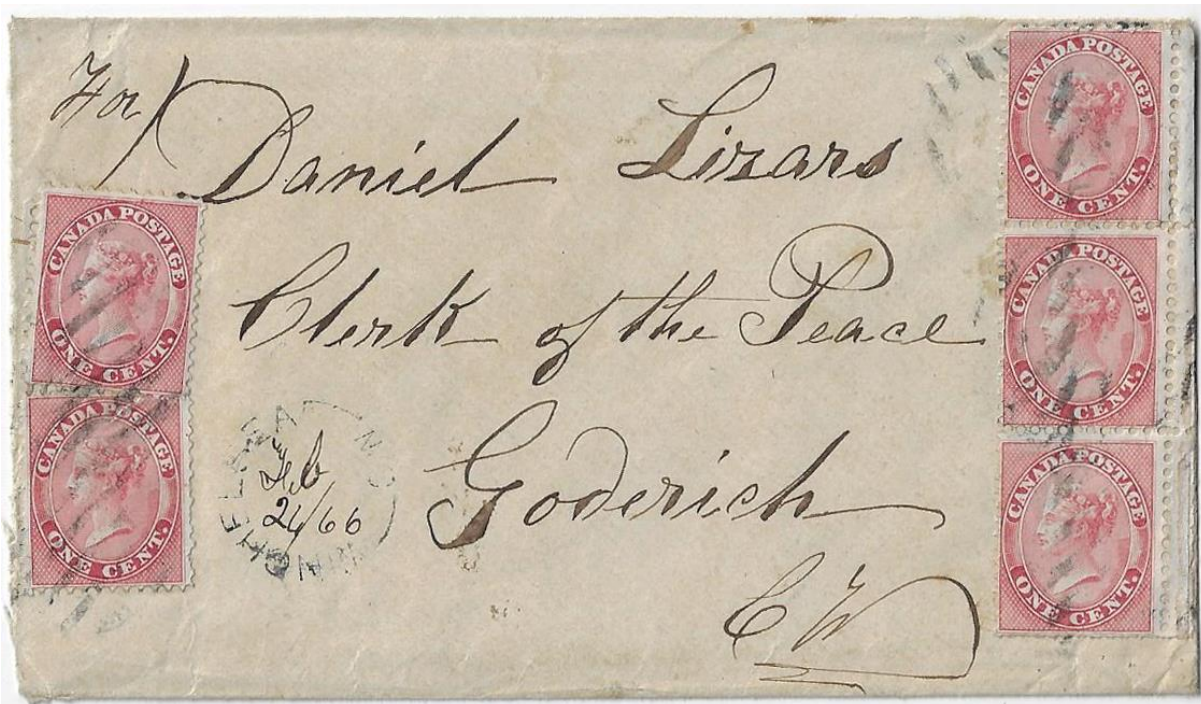 For
Daniel Lizars
Clerk of the Peace
Goderich
C W
Feb
26/66
CANADA POSTAGE
ONE CENT.
CANADA POSTAGE
ONE CENT.
CANADA POSTAGE
ONE CENT.
CANADA POSTAGE
ONE CENT.
CANADA POSTAGE
ONE CENT.